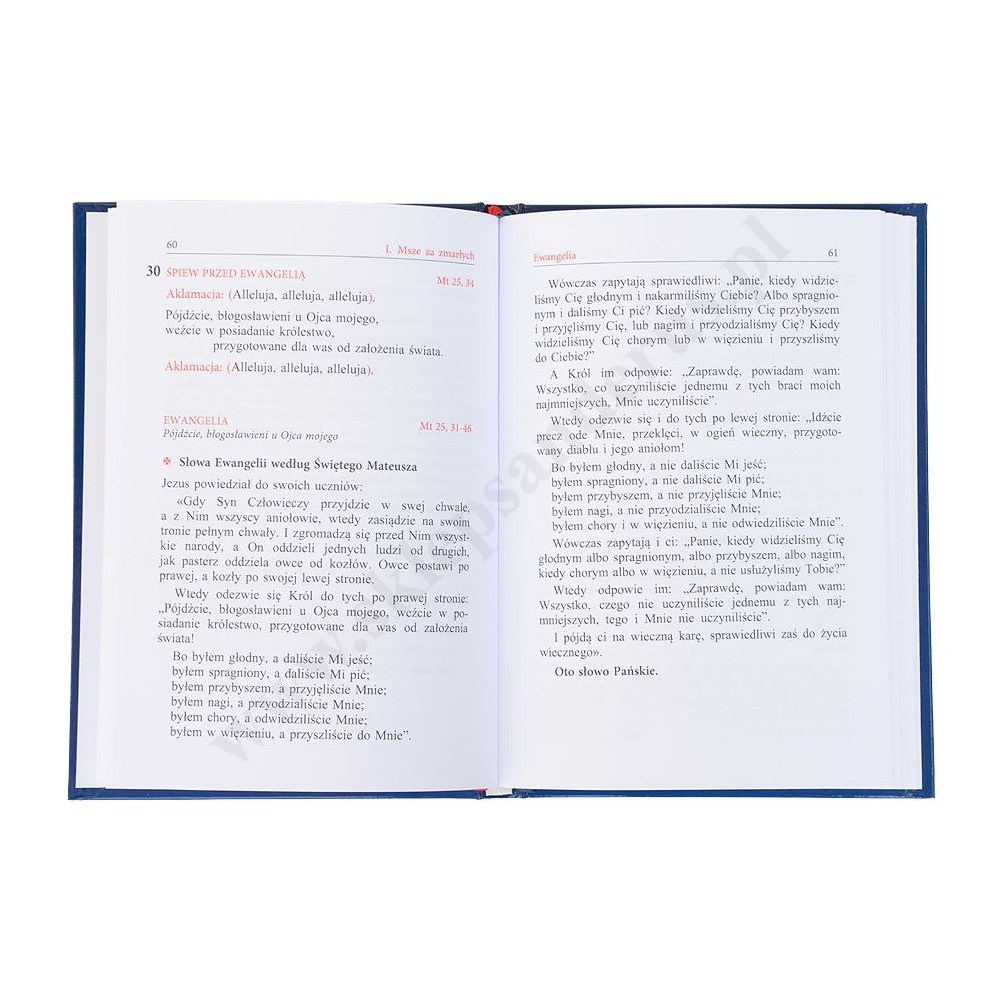 60
I. Msze za zmarłych
30 ŚPIEW PRZED EWANGELIĄ
Mt 25, 34
Aklamacja: (Alleluja, alleluja, alleluja).
Pójdźcie, błogosławieni u Ojca mojego,
weźcie w posiadanie królestwo,
przygotowane dla was od założenia świata.
Aklamacja: (Alleluja, alleluja, alleluja).
EWANGELIA
Mt 25, 31-46
Pójdźcie, błogosławieni u Ojca mojego
✠ Słowa Ewangelii według Świętego Mateusza
Jezus powiedział do swoich uczniów:
«Gdy Syn Człowieczy przyjdzie w swej chwale,
a z Nim wszyscy aniołowie, wtedy zasiądzie na swoim
tronie pełnym chwały. I zgromadzą się przed Nim wszyst-
kie narody, a On oddzieli jednych ludzi od drugich,
jak pasterz oddziela owce od kozłów. Owce postawi po
prawej, a kozły po swojej lewej stronie.
Wtedy odezwie się Król do tych po prawej stronie:
„Pójdźcie, błogosławieni u Ojca mojego, weźcie w po-
siadanie królestwo, przygotowane dla was od założenia
świata!
Bo byłem głodny, a daliście Mi jeść;
byłem spragniony, a daliście Mi pić;
byłem przybyszem, a przyjęliście Mnie;
byłem nagi, a przyodzialiście Mnie;
byłem chory, a odwiedziliście Mnie;
byłem w więzieniu, a przyszliście do Mnie”.
Ewangelia
61
Wówczas zapytają sprawiedliwi: „Panie, kiedy widzie-
liśmy Cię głodnym i nakarmiliśmy Ciebie? Albo spragnio-
nym i daliśmy Ci pić? Kiedy widzieliśmy Cię przybyszem
i przyjęliśmy Cię, lub nagim i przyodzialiśmy Cię? Kiedy
widzieliśmy Cię chorym lub w więzieniu i przyszliśmy
do Ciebie?”
A Król im odpowie: „Zaprawdę, powiadam wam:
Wszystko, co uczyniliście jednemu z tych braci moich
najmniejszych, Mnie uczyniliście”.
Wtedy odezwie się i do tych po lewej stronie: „Idźcie
precz ode Mnie, przeklęci, w ogień wieczny, przygoto-
wany diabłu i jego aniołom!
Bo byłem głodny, a nie daliście Mi jeść;
byłem spragniony, a nie daliście Mi pić;
byłem przybyszem, a nie przyjęliście Mnie;
byłem nagi, a nie przyodzialiście Mnie;
byłem chory i w więzieniu, a nie odwiedziliście Mnie”.
Wówczas zapytają i ci: „Panie, kiedy widzieliśmy Cię
głodnym albo spragnionym, albo przybyszem, albo nagim,
kiedy chorym albo w więzieniu, a nie usłużyliśmy Tobie?”
Wtedy odpowie im: „Zaprawdę, powiadam wam:
Wszystko, czego nie uczyniliście jednemu z tych naj-
mniejszych, tego i Mnie nie uczyniliście”.
I pójdą ci na wieczną karę, sprawiedliwi zaś do życia
wiecznego».
Oto słowo Pańskie.